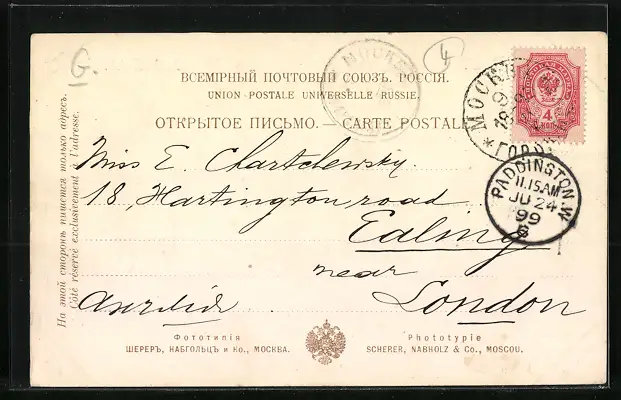 G.
4
ВСЕМІРНЫЙ ПОЧТОВЫЙ СОЮЗЪ. РОССІЯ.
UNION POSTALE UNIVERSELLE RUSSIE.
ОТКРЫТОЕ ПИСЬМО. — CARTE POSTALE
МОСКВА
4
МОСКВА
ГОРОД
PADDINGTON.W.
11.15AM
JU 24
99
Miss E. Chartchewsky
18, Hartington road
Ealing
near
London
Англія
На этой сторонѣ пишется только адресъ.
Côté réservé exclusivement à l'adresse.
Фототипія
ШЕРЕРЪ, НАБГОЛЬЦЪ и Ко., МОСКВА.
Phototypie
SCHERER, NABHOLZ & Co., MOSCOU.